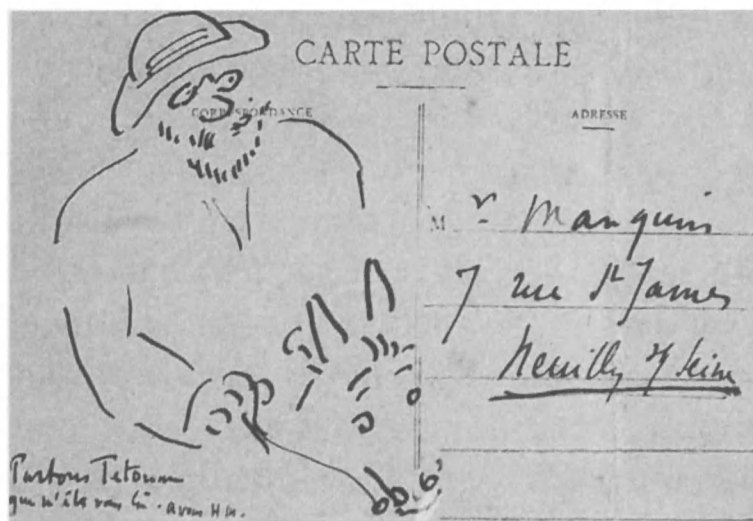 CARTE POSTALE
CORRESPONDANCE
ADRESSE
M r Manguin
7 rue St James
Neuilly s/ Seine
Partons Tetouan
que n'êtes vous là - avons H M.